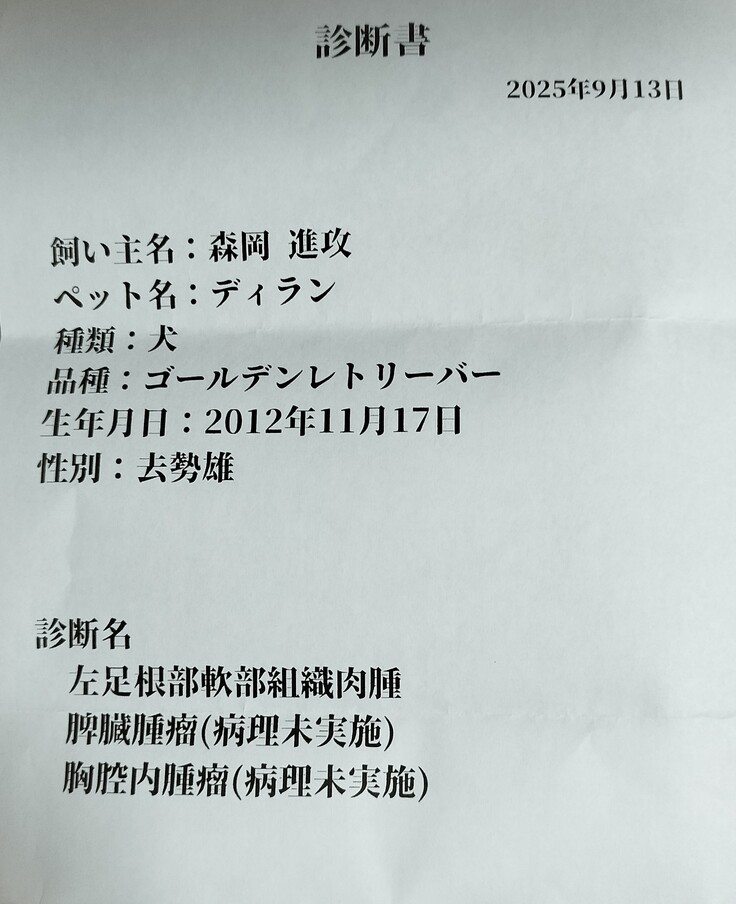 診断書
2025年9月13日
飼い主名：森岡 進攻
ペット名：ディラン
種類：犬
品種：ゴールデンレトリーバー
生年月日：2012年11月17日
性別：去勢雄
診断名
左足根部軟部組織肉腫
脾臓腫瘤(病理未実施)
胸腔内腫瘤(病理未実施)